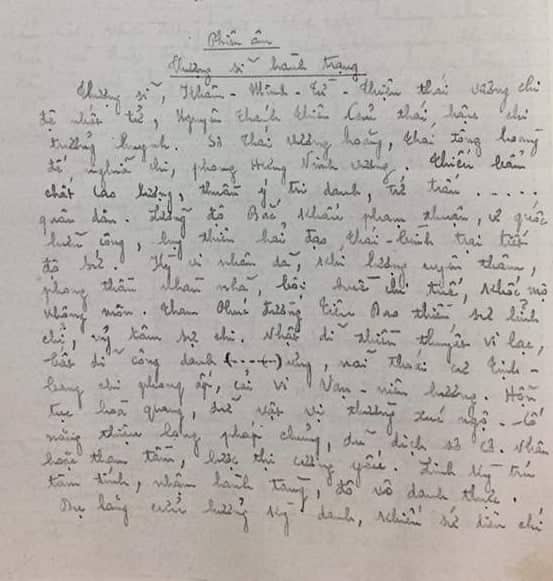 Phiên âm
Thượng sĩ hành trạng
Thượng sĩ, Khâm - Minh - Từ - Thiện thái vương chi
đệ nhất tử, Nguyên Thánh Thiên Cảm thái hậu chi
trưởng huynh. Sơ Thái vương hoăng, Thái tông hoàng
đế nghĩa chi, phong Hưng Ninh vương. Thiếu bẩm
chất cao lượng, thuần ý tri danh, Trú trấn . . . . .
quân dân. Lưỡng độ Bắc khấu phạm thuận, ư quốc
hữu công, luỹ thiên hải đạo Thái - bình trại tiết
độ sứ. Kỳ vi nhân dã, khí lượng uyên thâm,
phong thần nhàn nhã, khốc mộ
không môn. Tham Phúc đường Tiêu Dao thiền sư lĩnh
chỉ, uỷ tâm sự chi. Nhật dĩ thiền thuyết vi lạc,
bất dĩ công danh ứng, nãi thoái cư Tịnh -
bang chi phong ấp, cải vi Vạn - niên hương. Hỗn
tục hoà quang, dữ vật vị thường xúc ngộ. - Cố
năng thiệu long pháp chủng, dụ dịch sơ cơ. Nhân
hoặc tham tầm, lược thi cương yếu. Linh kỳ trú
tâm tính, nhậm hành tàng, đô vô danh thực.
Dụ lăng cửu hưởng kỳ danh, khiển sứ diên chí